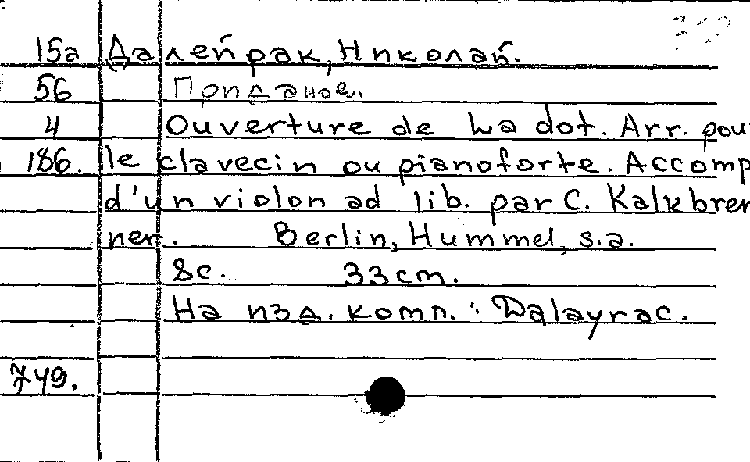 15а Далейрак, Николай.
56 Приданое.
4 Ouverture de La dot. Arr. pou
186. le clavecin ou pianoforte. Accomp
d'un violon ad lib. par C. Kalkbren
ner. Berlin, Hummel, s.a.
8c. 33cm.
На изд. комп.: Dalayrac.
749.